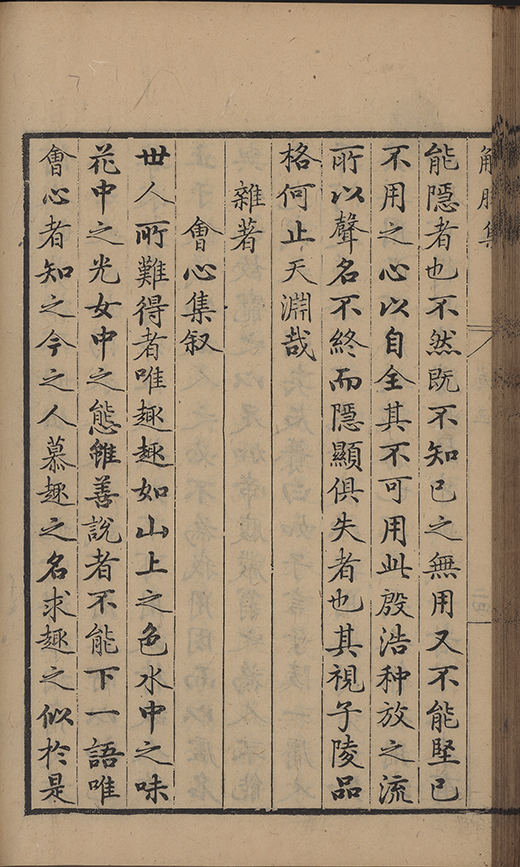 解脫集
能隱者也不然既不知已之無用又不能堅已
不用之心以自全其不可用此殷浩种放之流
所以聲名不終而隱顯俱失者也其視子陵品
格何止天淵哉
雜著
會心集叙
世人所難得者唯趣趣如山上之色水中之味
花中之光女中之態雖善說者不能下一語唯
會心者知之今之人慕趣之名求趣之似於是